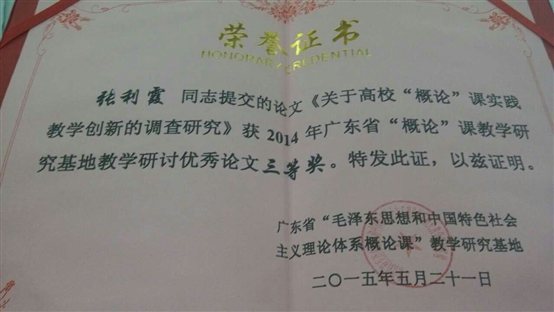 荣誉证书
HONORARY CREDENTIAL
张利霞 同志提交的论文《关于高校“概论”课实践
教学创新的调查研究》获2014年广东省“概论”课教学研
究基地教学研讨优秀论文三等奖。特发此证，以兹证明。
广东省“毛泽东思想和中国特色社会
主义理论体系概论课”教学研究基地
二〇一五年五月二十一日